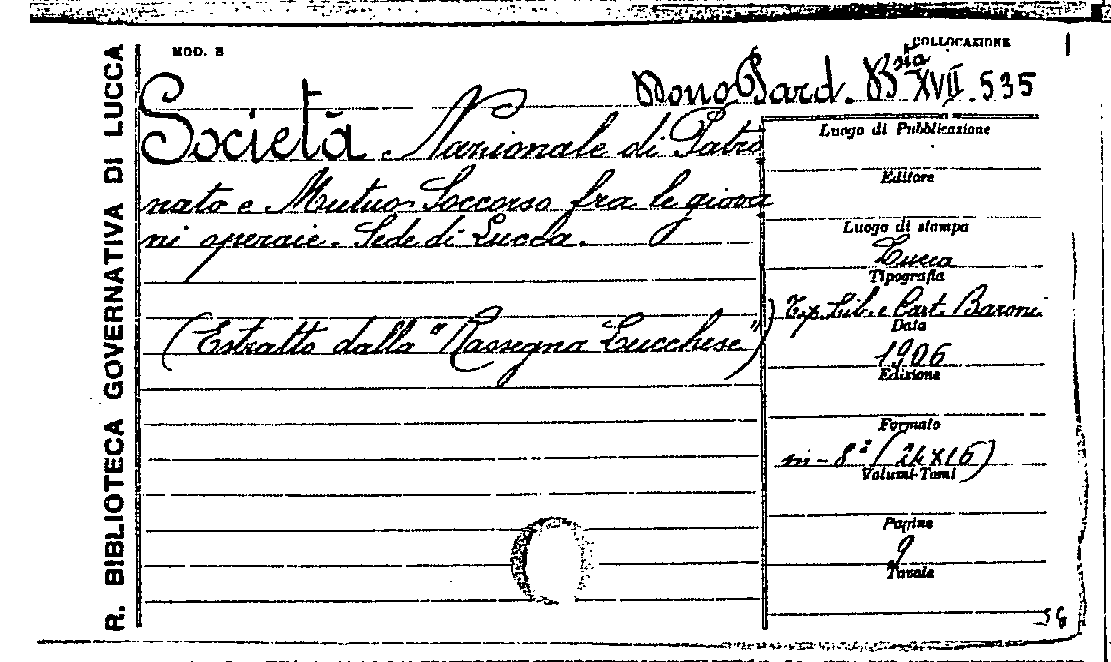 R. BIBLIOTECA GOVERNATIVA DI LUCCA
MOD. B
COLLOCAZIONE
Dono Pard. Bsta XVII. 535
Società Nazionale di Patro
nato e Mutuo Soccorso fra le giova
ni operaie. Sede di Lucca.
(Estratto dalla "Rassegna Lucchese")
Luogo di Pubblicazione
Editore
Luogo di stampa
Lucca
Tipografia
Tip. Lib. e Cart. Baroni
Data
1906
Edizione
Formato
in-8° (24x16)
Volumi-Tomi
Pagine
9
Tavole